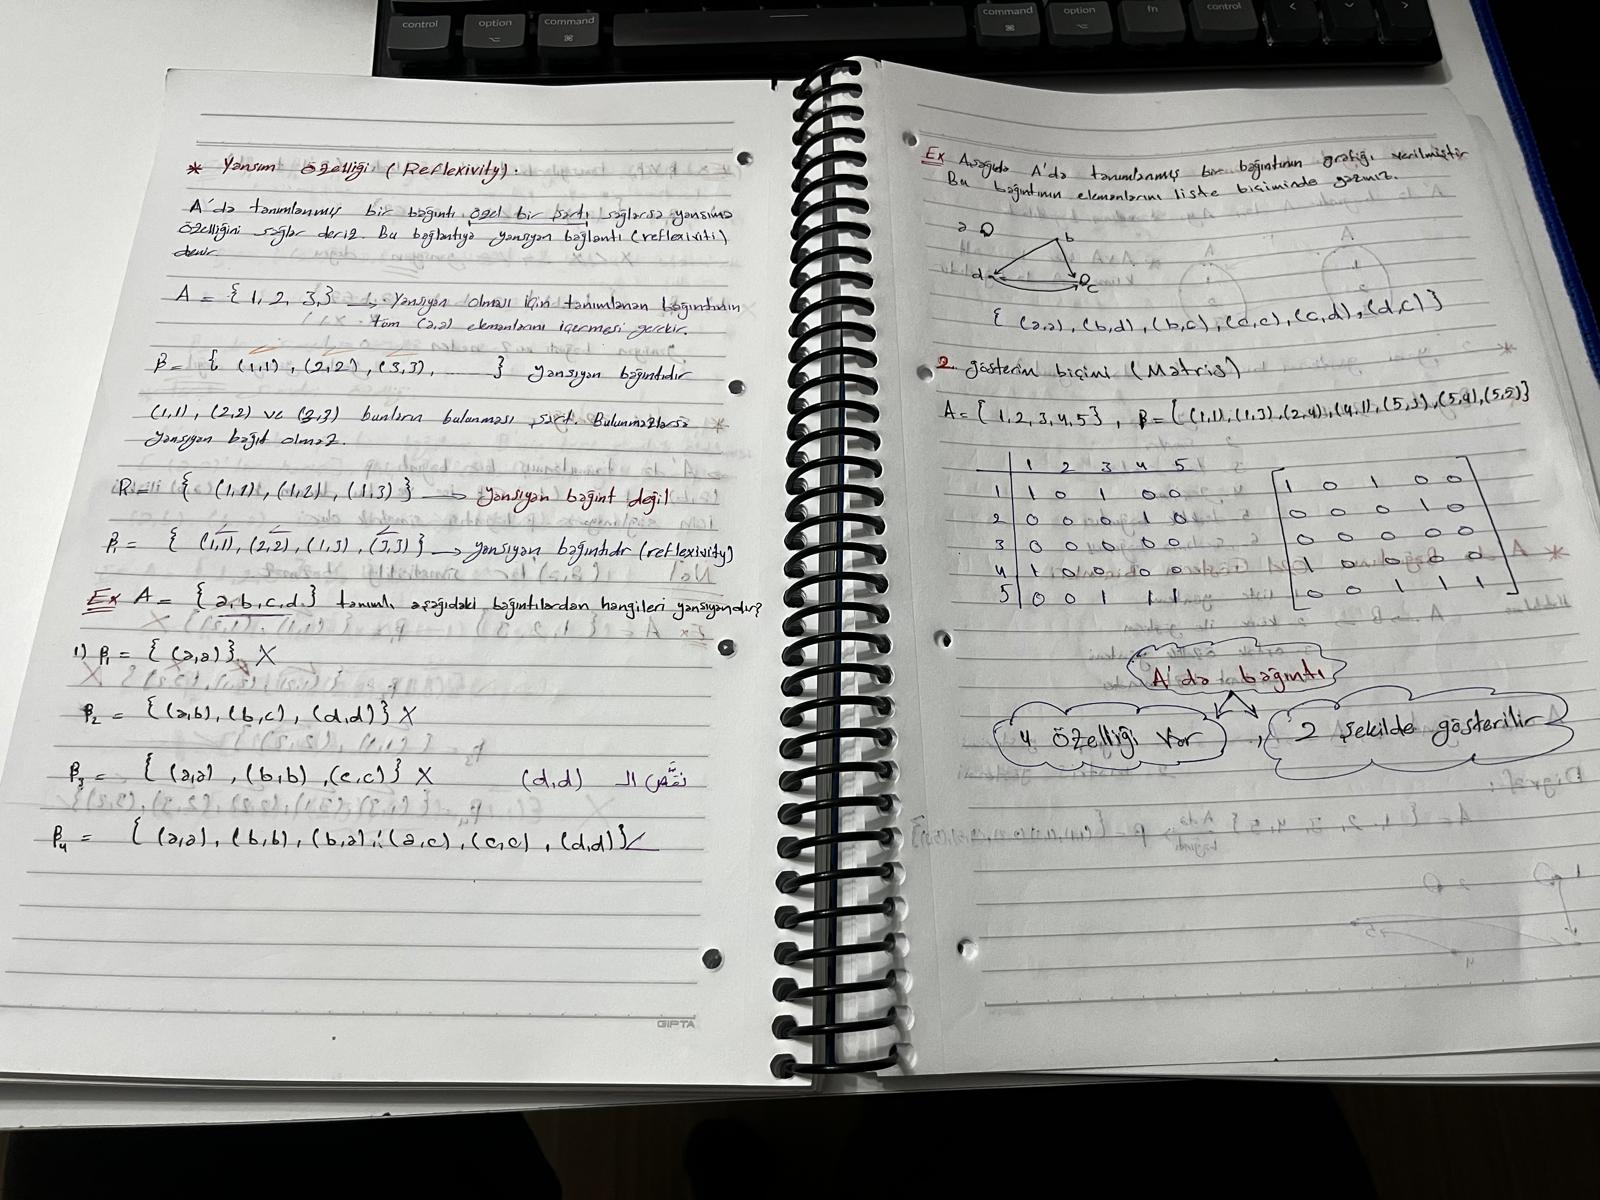 control
option
command
command
option
fn
control
* Yansıma özelliği (Reflexivity).
A'da tanımlanmış bir bağıntı özel bir şartı sağlarsa yansıma
özelliğini sağlar deriz. Bu bağlantıya yansıyan bağlantı (reflexiviti)
denir.
A = { 1, 2, 3,} → Yansıyan olması için tanımlanan bağıntının
tüm (a,a) elemanlarını içermesi gerekir.
β = { (1,1), (2,2), (3,3), ...... } yansıyan bağıntıdır
(1,1), (2,2) ve (3,3) bunların bulunması şart. Bulunmazlarsa
yansıyan bağıt olmaz.
R = { (1,1), (1,2), (1,3) } → yansıyan bağınt değil
β₁ = { (1,1), (2,2), (1,3), (3,3) } → yansıyan bağıntıdr (reflexivity)
Ex A = { a,b,c,d } tanımlı aşağıdaki bağıntılardan hangileri yansıyandır?
1) β₁ = { (a,a) } X
β₂ = { (a,b), (b,c), (d,d) } X
β₃ = { (a,a), (b,b), (c,c) } X (d,d) نقص الـ
β₄ = { (a,a), (b,b), (b,a), (a,c), (c,c), (d,d) }
GIPTA
Ex Aşağıda A'da tanımlanmış bir bağıntının grafiği verilmiştir
Bu bağıntının elemanlarını liste biçiminde yazınız.
a
b
d
c
{ (a,a), (b,d), (b,c), (c,c), (c,d), (d,c) }
2. gösterim biçimi (Matris)
A = { 1, 2, 3, 4, 5 }, β = { (1,1), (1,3), (2,4), (4,1), (5,3), (5,4), (5,5) }
1 2 3 4 5
1 1 0 1 0 0 1 0 1 0 0
2 0 0 0 1 0 0 0 0 1 0
3 0 0 0 0 0 0 0 0 0 0
4 1 0 0 0 0 1 0 0 0 0
5 0 0 1 1 1 0 0 1 1 1
A'da bağıntı
4 özelliği var , 2 şekilde gösterilir